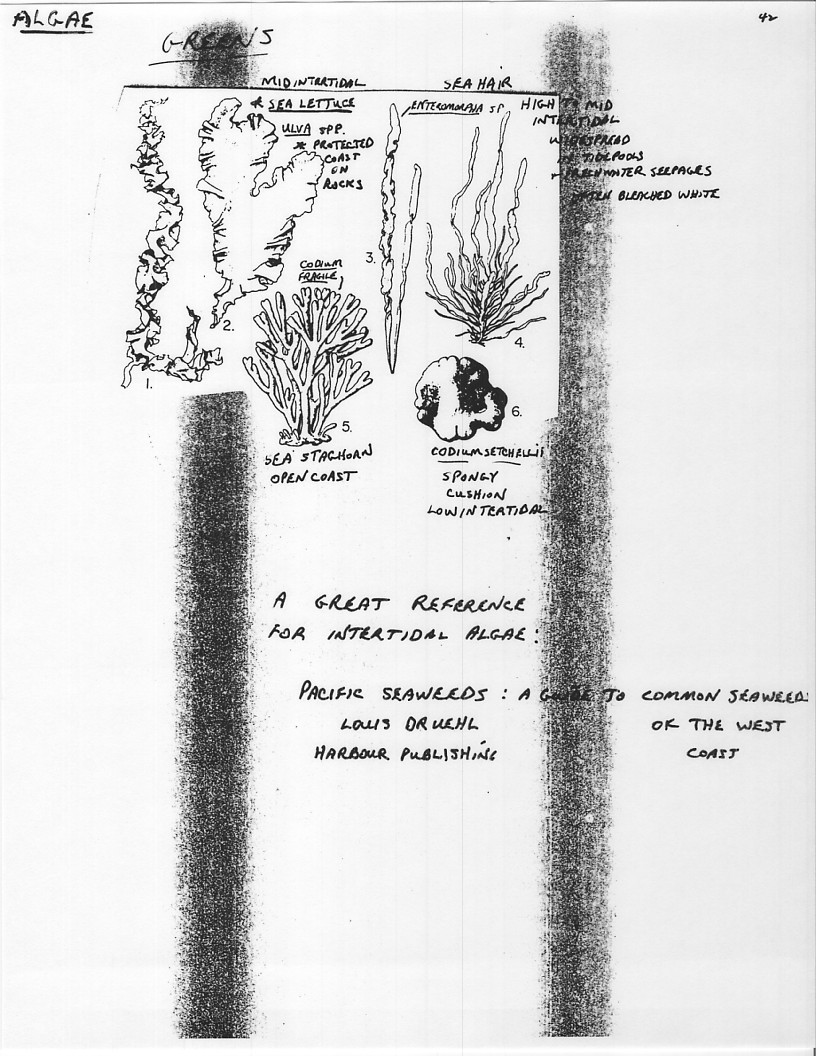 ALGAE
42
GREENS
MID INTERTIDAL
* SEA LETTUCE
ULVA SPP.
* PROTECTED
COAST
ON
ROCKS
SEA HAIR
ENTEROMORPHA SP.
HIGH TO MID
INTERTIDAL
WIDESPREAD
IN TIDEPOOLS
+ FRESHWATER SEEPAGES
OFTEN BLEACHED WHITE
CODIUM
FRAGILE
1.
2.
3.
4.
5.
6.
SEA STAGHORN
OPEN COAST
CODIUM SETCHELLII
SPONGY
CUSHION
LOW INTERTIDAL
A GREAT REFERENCE
FOR INTERTIDAL ALGAE:
PACIFIC SEAWEEDS : A GUIDE TO COMMON SEAWEEDS
LOUIS DRUEHL OF THE WEST
HARBOUR PUBLISHING COAST